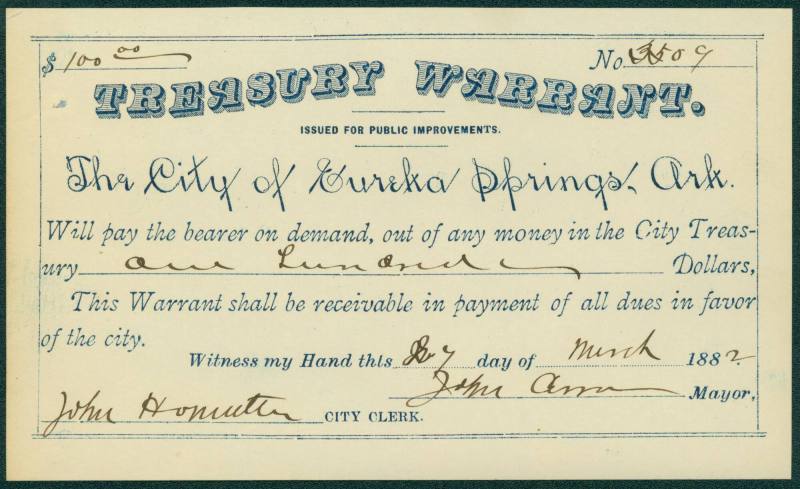 $ 100 00 No 3509
TREASURY WARRANT.
ISSUED FOR PUBLIC IMPROVEMENTS.
The City of Eureka Springs, Ark.
Will pay the bearer on demand, out of any money in the City Treas-
ury one hundred Dollars,
This Warrant shall be receivable in payment of all dues in favor
of the city.
Witness my Hand this 27 day of March 1882
John Mayor,
John CITY CLERK.